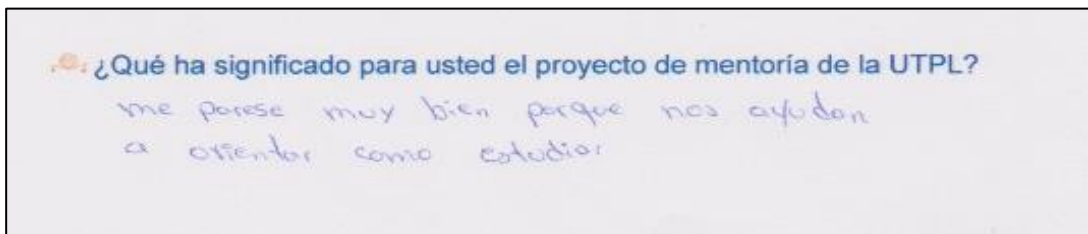 ¿Qué ha significado para usted el proyecto de mentoría de la UTPL?
me parese muy bien porque nos ayudan
a orientar como estudiar